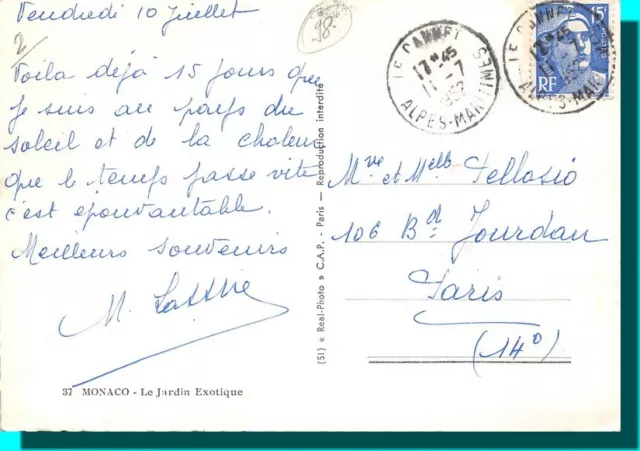 Vendredi 10 Juillet
2/
Voila déjà 15 jours que
je suis au pays du
soleil et de la chaleur
que le temps passe vite
c'est épouvantable.
Meilleurs souvenirs
M.
37 MONACO - Le Jardin Exotique
(SI) « Real-Photo » C.A.P. - Paris - Reproduction interdite
98-
LE CANNET
17 H 45
11 - 7
1952
ALPES-MARITIMES
LE CANNET
17 H 45
ALPES-MARI
15F
RF
Mve et Melle Pellosio
106 Bd Jourdan
Paris
(14°)